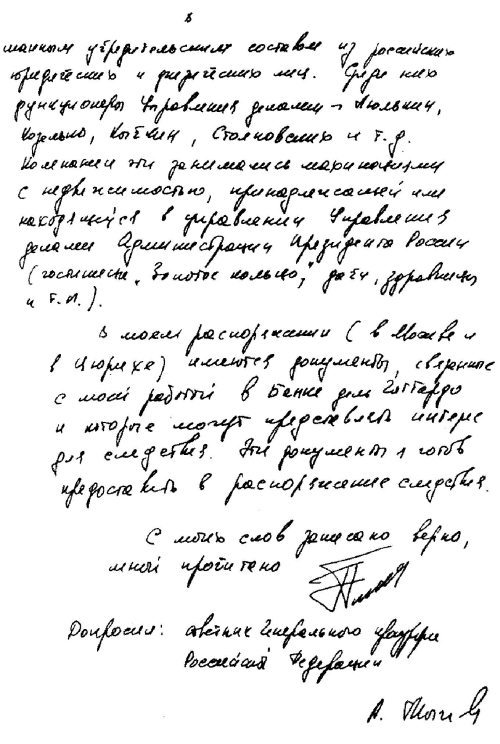 шанным учредительским составом из российских
юридических и физических лиц. Среди них
функционеры Управления делами – Люлькин,
Козелько, Кыткин, Стояновских и т.д.
Компании эти занимались махинациями
с недвижимостью, принадлежащей или
находящейся в управлении Управления
делами Администрации Президента России
(гостиницы "Золотое кольцо", дачи, здравницы
и т.п.).
В моем распоряжении (в Москве и
в Цюрихе) имеются документы, связанные
с моей работой в Банке дель Готтардо
и которые могут представлять интерес
для следствия. Эти документы я готов
предоставить в распоряжение следствия.
С моих слов записано верно,
мной прочитано
Допросил: советник Генерального прокурора
Российской Федерации
А.